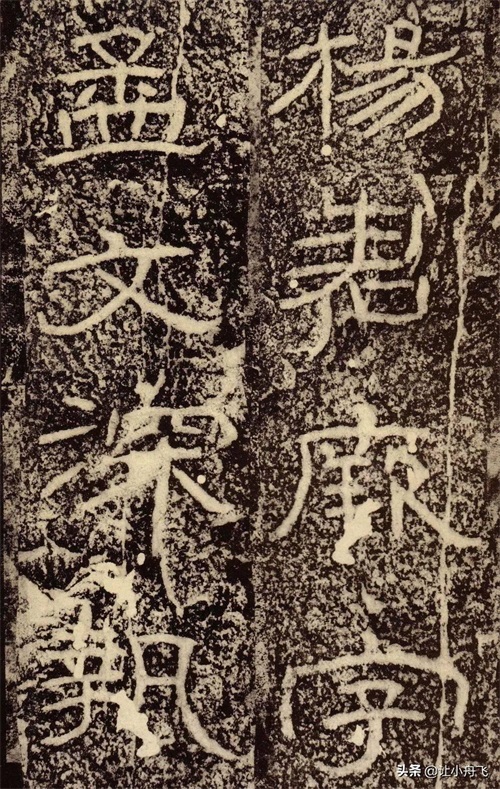 楊君厥字
孟文深執
头条 @让小舟飞